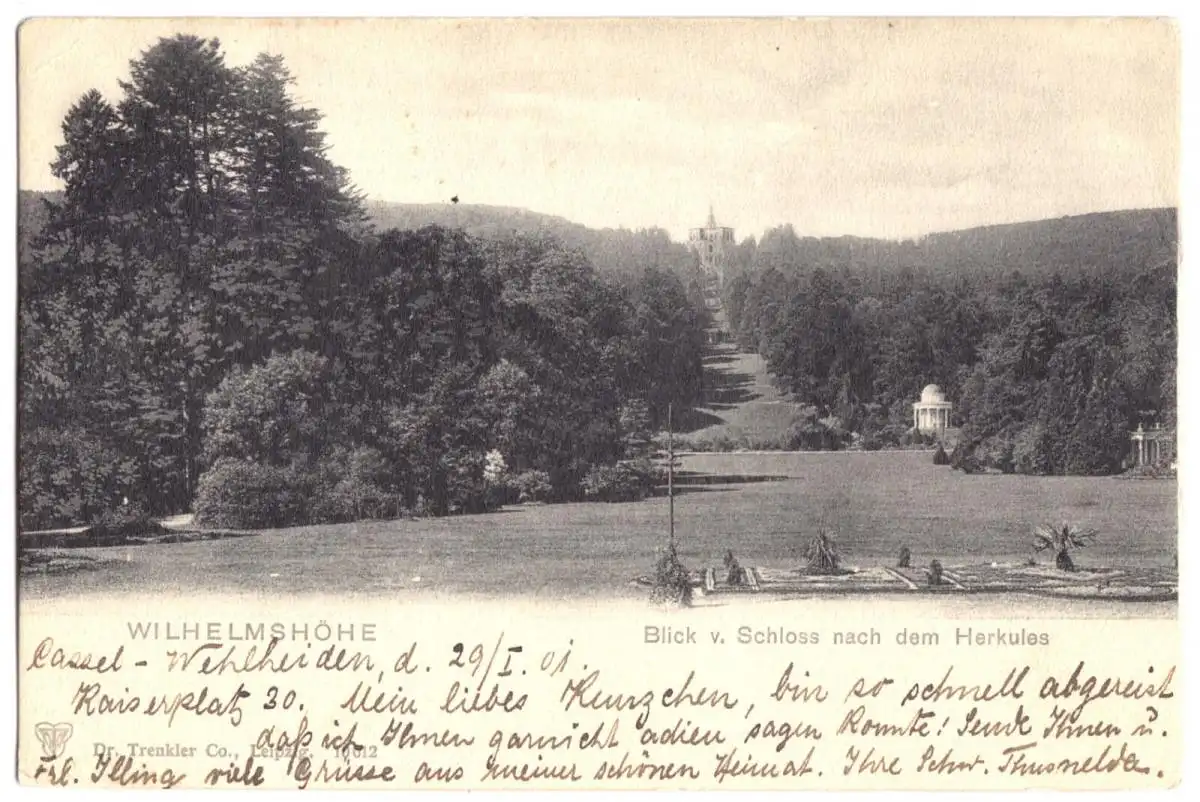 WILHELMSHÖHE
Blick v. Schloss nach dem Herkules
Cassel - Wehlheiden, d. 29/I. 01.
Kaiserplatz 30. Mein liebes Kunzchen, bin so schnell abgereist
daß ich Ihnen garnicht adieu sagen konnte! Sende Ihnen u.
Dr. Trenkler Co., Leipzig. 10612
Frl. Illing viele Grüsse aus meiner schönen Heimat. Ihre Schw. Thusnelda.